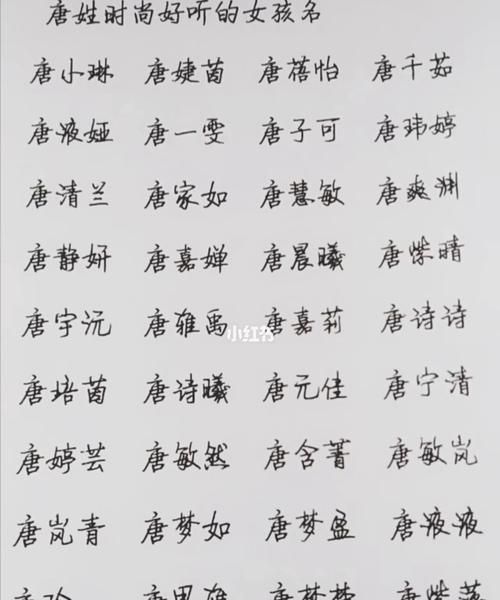 唐姓时尚好听的女孩名
唐小琳 唐婕茵 唐蓓怡 唐千茹
唐液娅 唐一雯 唐子可 唐玮婷
唐清兰 唐家如 唐慧敏 唐爽渊
唐静妍 唐嘉婵 唐晨曦 唐紫晴
唐宇沅 唐雅禹 唐嘉莉 唐诗诗
小红书
唐培茵 唐诗曦 唐元佳 唐宁清
唐婷芸 唐敏然 唐含菁 唐敏岚
唐岚青 唐梦如 唐梦盈 唐液液